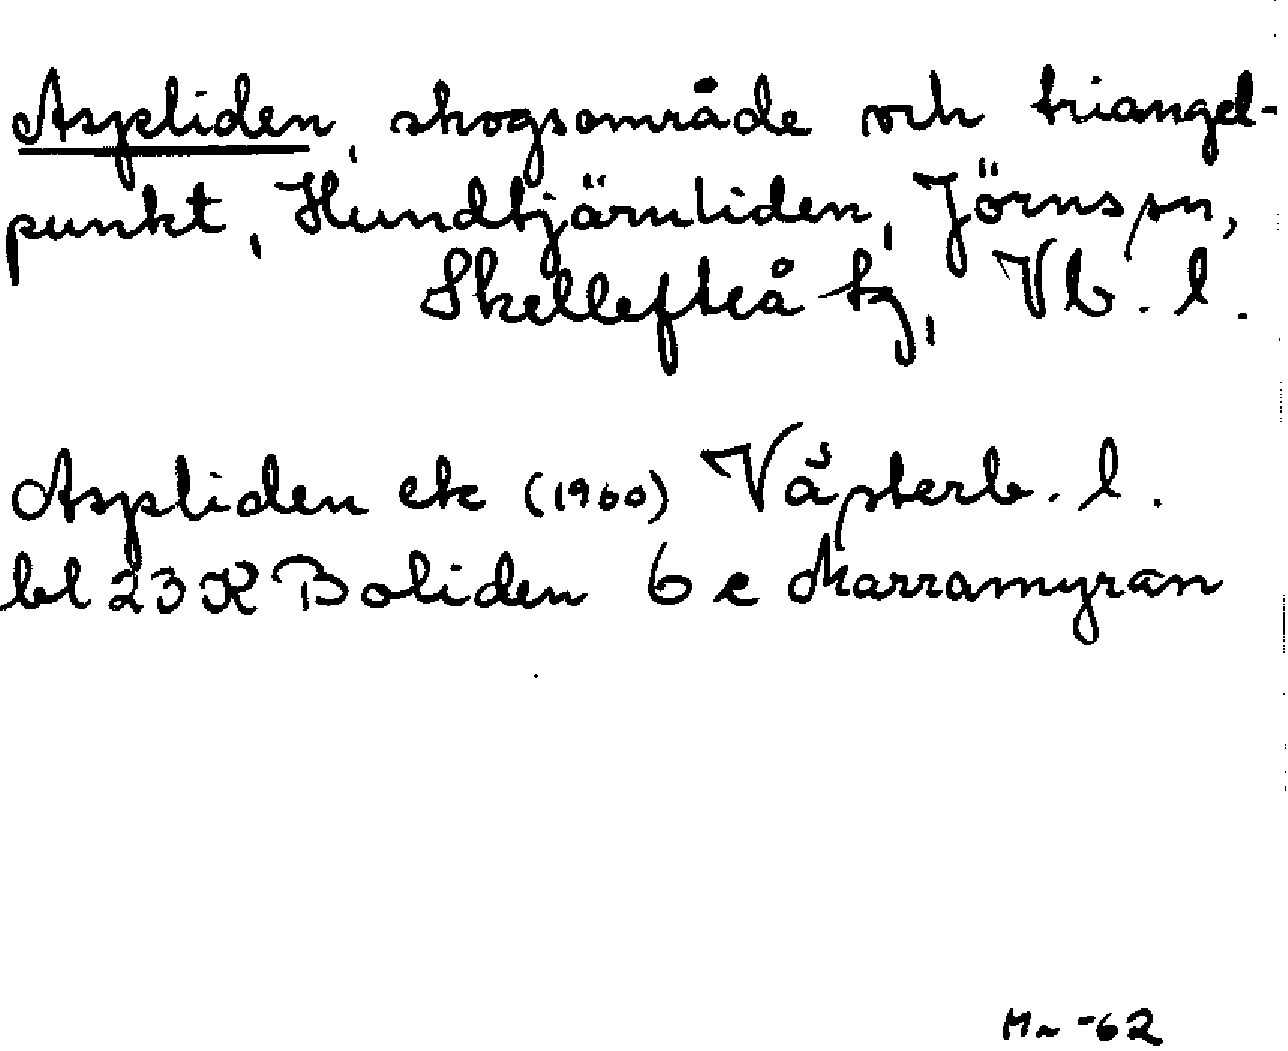 Aspliden, skogsområde och triangel-
punkt, Hundtjärnliden, Jörns sn,
Skellefteå tg, Vb. l.
Aspliden ek (1960) Västerb. l.
bl 23 K Boliden 6 e Marramyran
Mn -62